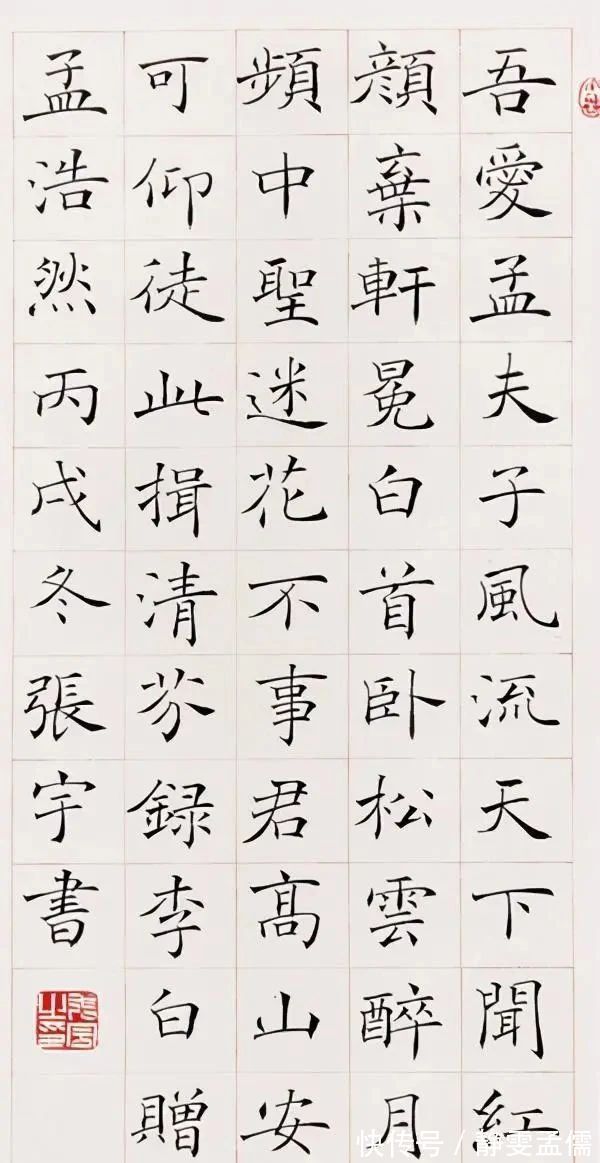 吾愛孟夫子風流天下聞紅
顔棄軒冕白首卧松雲醉月
頻中聖迷花不事君髙山安
可仰徒此揖清芬録李白贈
孟浩然丙戌冬張宇書
張宇之印
快传号/静雯孟儒